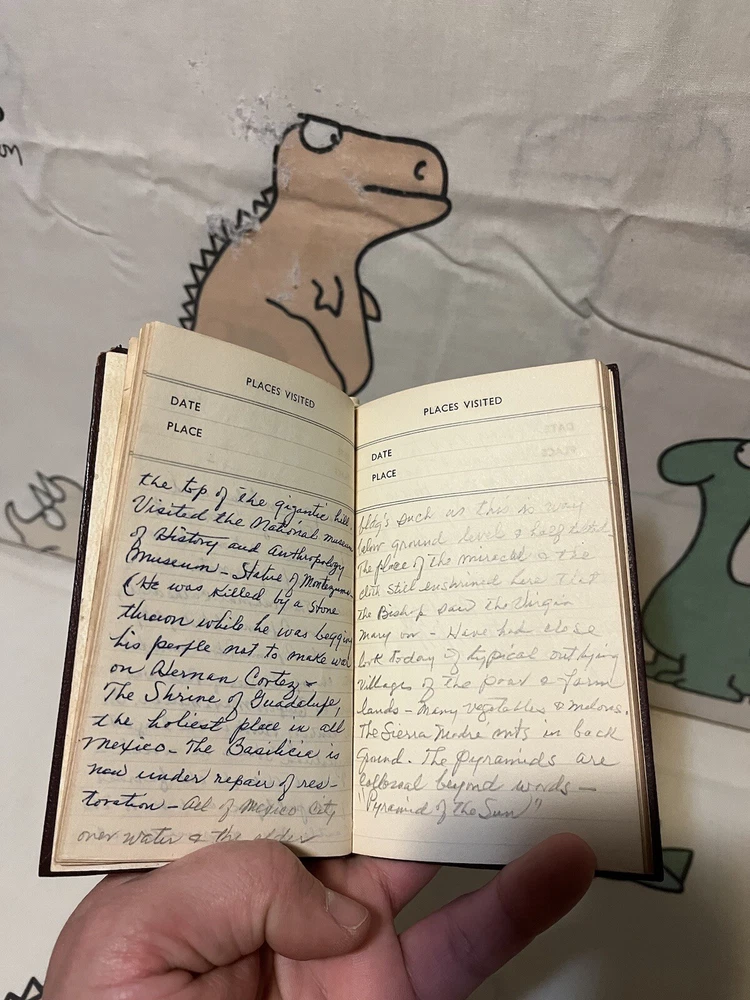 PLACES VISITED
DATE
PLACE
the top of the gigantic hill.
Visited the National museum
of History and Anthropology
museum - Statue of Montezuma
(He was killed by a stone
thrown while he was begging
his people not to make war
on Hernan Cortez &
The Shrine of Guadalupe,
the holiest place in all
Mexico - The Basilicia is
now under repair of res-
toration - All of Mexico City
over water & the older
PLACES VISITED
DATE
PLACE
bldg's such as this is way
below ground level &
The place of the miracle & the
cloth still enshrined here that
the Bishop saw the Virgin
Mary on - Have had close
look today of typical outlying
villages of the poor & farm
lands - Many vegetables & melons.
The Sierra Madre mts in back
ground. The Pyramids are
collosal beyond words -
"Pyramid of the Sun"